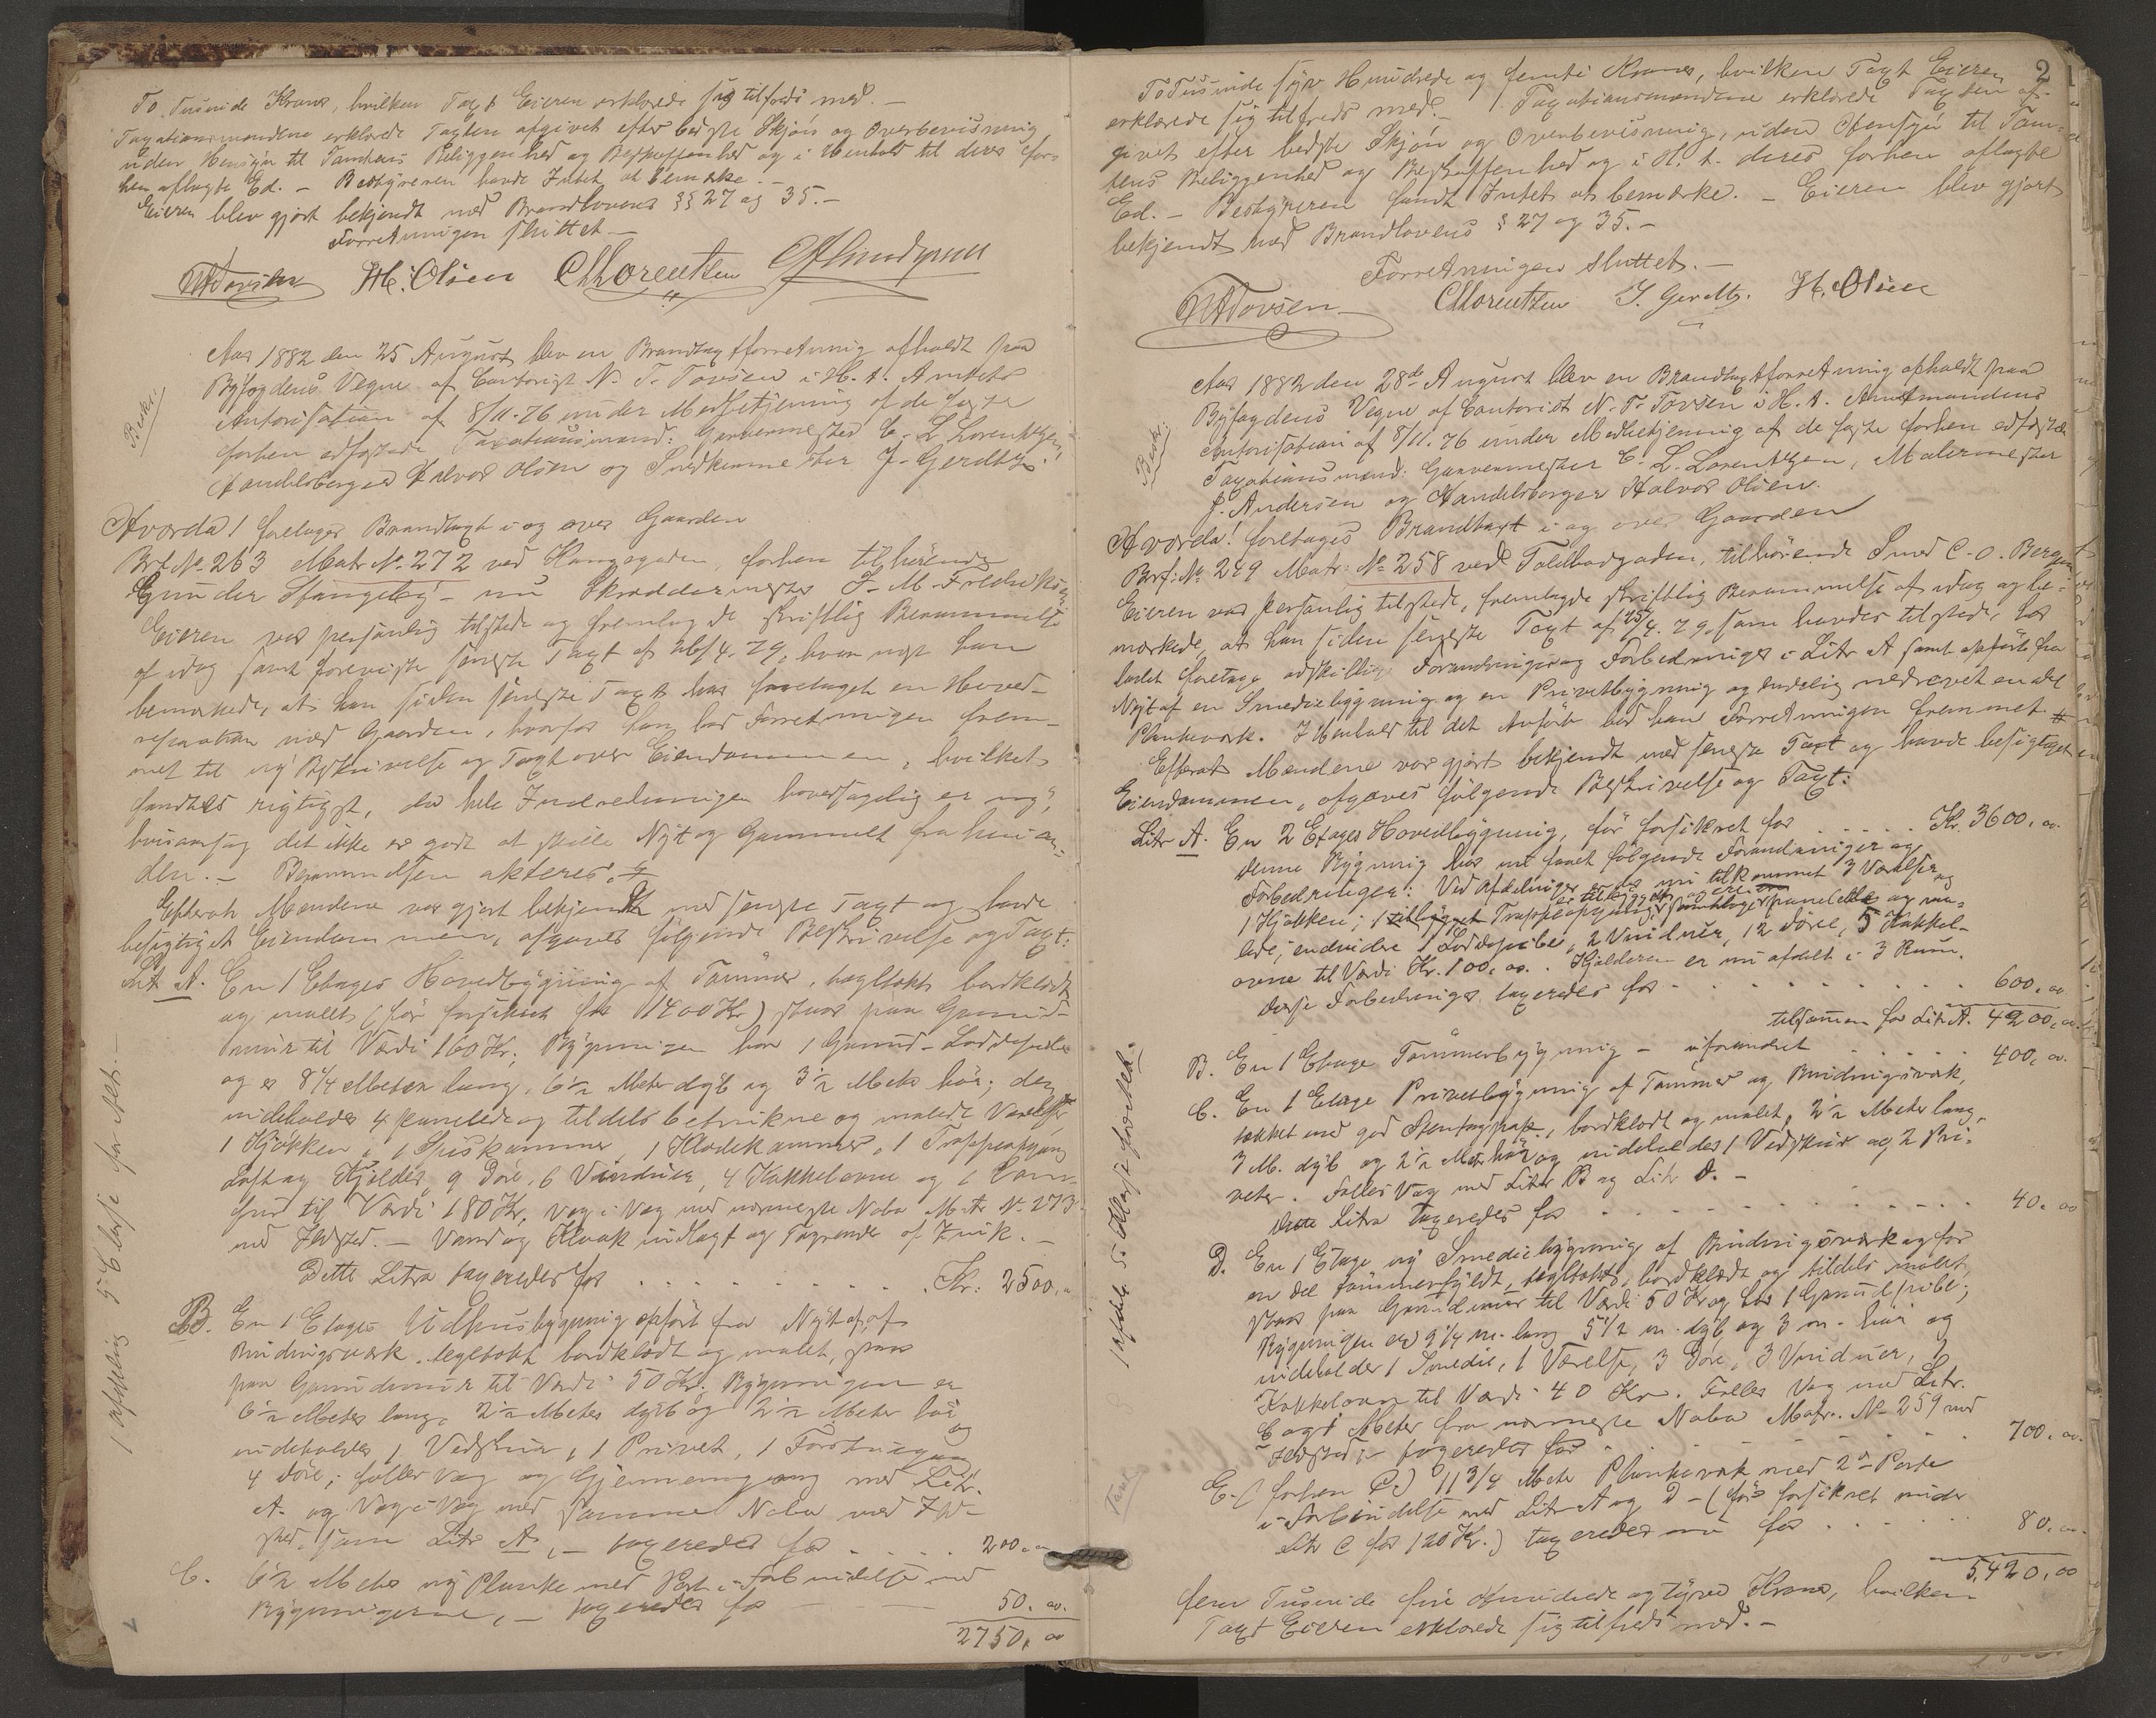 To Tusinde Kroner, hvilken Taxt Eieren erklærede sig tilfreds med. —
Taxationsmændene erklærede Taxten afgivet efter bedste Skjön og Overbevisning
uden Hensyn til Tomtens Beliggenhed og Beskaffenhed og i Henhold til deres for-
hen aflagte Ed. — Bestyreren havde Intet at bemærke. —
Eieren blev gjort bekjendt med Brandlovens §§ 27 og 35. —
Forretningen sluttet. —
NTTovsen H. Olsen CLLorentzen
Beskr.
Aar 1882 den 25 August blev en Brandtaxtforretning afholdt paa
Byfogdens Vegne af Contorist N. T. Tovsen i H. t. Amtets
Autorisation af 8/11. 76 under Medbetjening af de faste
forhen edfæstede Taxationsmænd: Garvermester C. L. Lorentzen,
Handelsborger Halvor Olsen og Snedkermester J. Gerdtz.
Hvorda! foretoges Brandtaxt i og over Gaarden
Brf. No. 263 Matr No. 272 ved Kongsgaden, forhen tilhörende
Gunder Stangeby — nu Skræddermester J. M. Fredriksen
Eieren var personlig tilstede og fremlagde skriftlig Berammelse
af idag samt foreviste seneste Taxt af 26/4. 79, hvor ved han
bemærkede, at han siden seneste Taxt har foretaget en Hoved-
reparation med Gaarden, hvorfor han bad Forretningen frem-
met til ny Beskrivelse og Taxt over Eiendommen, hvilket
fandtes rigtigst, da hele Indredningen hovedsagelig er ny,
hvisaarsag det ikke er godt at skille Nyt og Gammelt fra hinan-
den. — Berammelsen akteres.
Efterat Mændene var gjort bekjendt med seneste Taxt og havde
besigtiget Eiendommen, afgaves følgende Beskrivelse og Taxt:
Litr A. En 1 Etages Hovedbygning af Tømmer, tegltækt bordklædt
og malet (för forsikret for 1400 Kr) staar paa Grund-
muur til Værdi 160 Kr. Bygningen har 1 Grund- Loddepibe
og er 8 1/4 Meter lang, 6 1/2 Meter dyb og 3 1/2 Meter höi; den
indeholder 4 panelede og tildels betrukne og malede Værelser
1 Kjökken, 1 Spiskammer, 1 Klædekammer, 1 Trappeopgang
Loft og Kjelder, 9 Döre, 6 Vinduer, 4 Kakkelovne og 1 Kom-
fur til Værdi 180 Kr, Væg i Væg med nærmeste Nabo Matr No. 273
med Ildsted. — Vand og Kloak indlagt og Tagrender af Zink. —
Dette Litra taxeredes for . . . . . Kr: 2500,
B. En 1 Etages Udhusbygning opfört fra Nyt af, af
Bindingsværk, tegltækt bordklædt og malet, staar
paa Grundmuur til Værdi 50 Kr. Bygningen er
6 1/2 Meter lang, 2 1/2 Meter dyb og 2 1/2 Meter höi og
indeholder 1 Vedskuur, 1 Privet, 1 Forstuegang
4 Döre; fælles Væg og Gjennemgang med Litr.
A. og Væg i Væg med samme Nabo med Ild-
sted, som Litr A. — taxeredes for . . . . 200.
C. 6 1/2 Meter ny Planke med Port i Forbindelse med
Bygningerne, — taxeredes for — — 50. oo.
2750, oo
1 Afdeling 5 Classe for Alt. —
2
To Tusinde syv Hundrede og femti Kroner, hvilken Taxt Eieren
erklærede sig tilfreds med. — Taxationsmændene erklærede Taxten af-
givet efter bedste Skjön og Overbevisning, uden Hensyn til Tom-
tens Beliggenhed og Beskaffenhed og i H. t. deres forhen aflagte
Ed. — Bestyreren fandt Intet at bemærke. — Eieren blev gjort
bekjendt med Brandlovens § 27 og 35. —
Forretningen sluttet. —
NTTovsen CLLorentzen J. Gerdtz. H. Olsen
Beskr.
Aar 1882 den 28de August blev en Brandtaxtforretning afholdt paa
Byfogdens Vegne af Contorist N. T. Tovsen i H. t. Amtmandens
Autorisation af 8/11. 76 under Medbetjening af de faste forhen edfæstede
Taxationsmænd: Garvermester C. L. Lorentzen, Malermester
J. Andersen og Handelsborger Halvor Olsen.
Hvorda! foretoges Brandtaxt i og over Gaarden
Brf: No. 249 Matr: No. 258 ved Toldbodgaden, tilhörende Smed C. O. Bergh
Eieren var personlig tilstede, fremlagde skriftlig Berammelse af idag og be-
mærkede, at han siden seneste Taxt af 25/4. 79, som havdes tilstede, har
ladet foretage adskillige Forandringer og Forbedringer i Litr A samt opført fra
Nyt af en Smediebygning og en Privetbygning og endelig nedrevet en del
Plankeværk. I Henhold til det Anförte bad han Forretningen fremmet
Efterat Mændene var gjort bekjendt med seneste Taxt og havde besigtiget
Eiendommen, afgaves følgende Beskrivelse og Taxt:
Litr A. En 2 Etages Hovedbygning, för forsikret for . . . . . Kr. 3600. oo.
Denne Bygning har nu faaet følgende Forandringer og
Forbedringer: Ved Afdelinger er nu tilkommet 3 Værelser og
1 Kjökken; 1 Trappeopgang panelede og ma-
lede; endvidere 1 Loddepibe, 2 Vinduer, 12 Döre, 5 Kakkel-
ovne til Værdi Kr. 100, oo. Kjelderen er nu afdelt i 3 Rum.
Disse Forbedringer taxeredes for . . . . . . 600, oo
tilsammen for Litr A. 4200, oo
B. En 1 Etage Tømmerbygning — uforandret . . . . . 400, oo.
C. En 1 Etage Privetbygning af Tømmer og Bindingsværk,
tækket med god Stentagpap, bordklædt og malet, 2 1/2 Meter lang
3 M. dyb og 2 1/2 Meter höi og indeholder 1 Vedskuur og 2 Pri-
veter. Fælles Væg med Litr B og Litr D. —
Dette Litra taxeredes for . . . . . . 40. oo
D. En 1 Etage ny Smediebygning af Bindingsværk og for
en del tømmerfyldt, tegltækt, bordklædt og tildels malet,
staar paa Grundmuur til Værdi 50 Kr og har 1 Grundpibe;
Bygningen er 9 1/4 m. lang 5 1/2 m. dyb og 3 m. höi og
indeholder 1 Smedie, 1 Værelse, 3 Döre, 3 Vinduer, 1
Kakkelovn til Værdi 40 Kr. Fælles Væg med Litr.
C og 1 Meter fra nærmeste Nabo Matr. No. 259 med
Ildsted; — taxeredes for . . . . . . 700. oo.
E. (forhen C) 11 3/4 Meter Plankeværk med 2de Porte
i Forbindelse med Litr A og D — (för forsikret under
Litr C for 120 Kr.) taxeredes nu for . . . . . 80. oo.
5,420, oo
fem Tusinde fire Hundrede og tyve Kroner, hvilken
Taxt Eieren erklærede sig tilfreds med. —